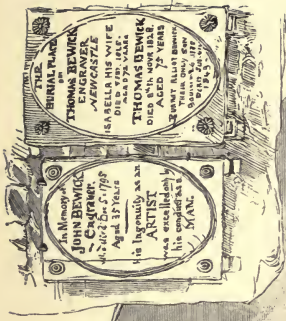 THE
BURIAL PLACE
OF
THOMAS BEWICK
ENGRAVER,
NEWCASTLE
ISABELLA HIS WIFE
DIED
AGED 72 YEARS.
THOMAS BEWICK
DIED 8TH NOVR 1828.
AGED 75 YEARS
ROBERT ELLIOT BEWICK
THEIR ONLY SON
BORN 1788
DIED
In Memory of
JOHN BEWICK
Engraver,
who died Dec. 5. 1795
Aged 35 Years
his Ingenuity as an
ARTIST
was excelled only by
his conduct as a
MAN.